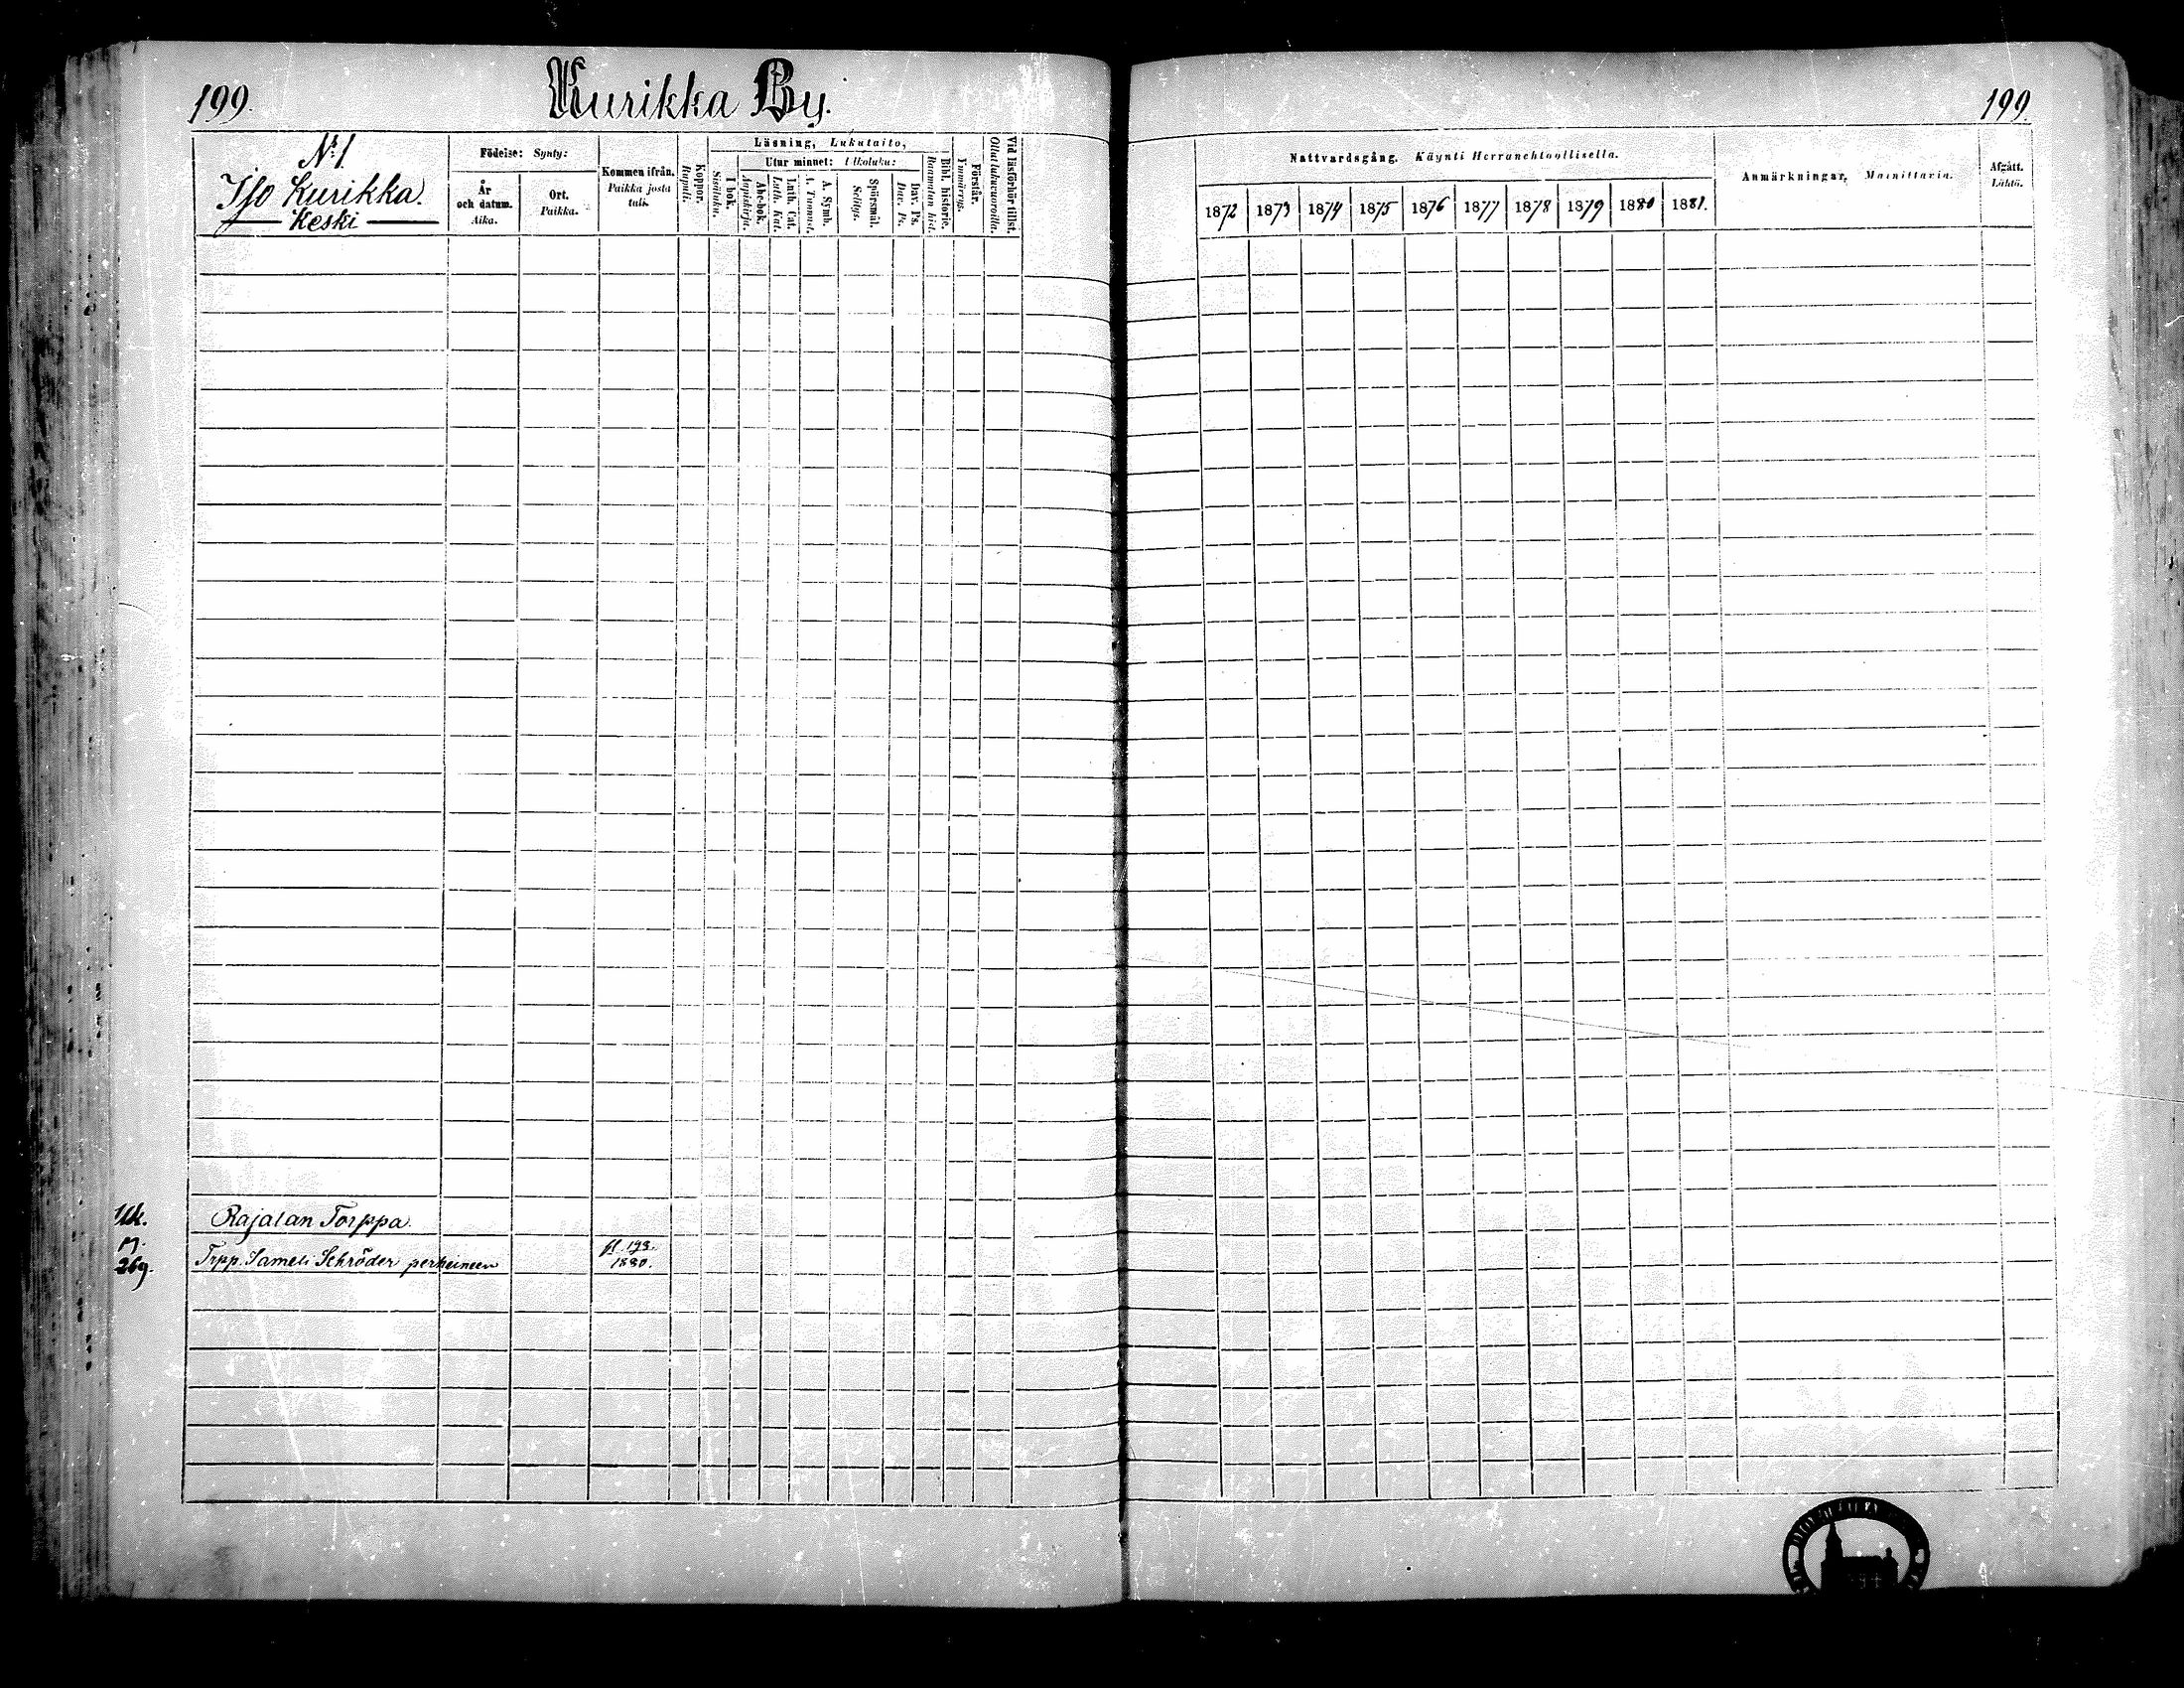 199.
Kurikka By.
№ 1
Iso Kurikka.
Keski
Födelse: Synty:
År och datum. Aika.
Ort. Paikka.
Kommen ifrån. Paikka josta tuli.
Koppor. Rupuli.
Läsning, Lukutaito,
I bok. Sisäluku.
Utur minnet: Ulkoluku:
Abc-bok. Aapiskirja.
Luth. Cat. Luth. Kat.
A. Symb. A. Tunnust.
Spörsmål. Selitys.
Dav. Ps. Dav. Ps.
Bibl. historie. Raamatun hist.
Förstår. Ymmärrys.
Vid läsförhör tillst. Ollut lukuvuoroilla.
Rajalan Torppa.
M.
269.
Trpp. Sameli Schröder perheineen
1880.
199.
Nattvardsgång. Käynti Herranehtoollisella.
1872 1873 1874 1875 1876 1877 1878 1879 1880 1881.
Anmärkningar, Mainittavia.
Afgått. Lähtö.